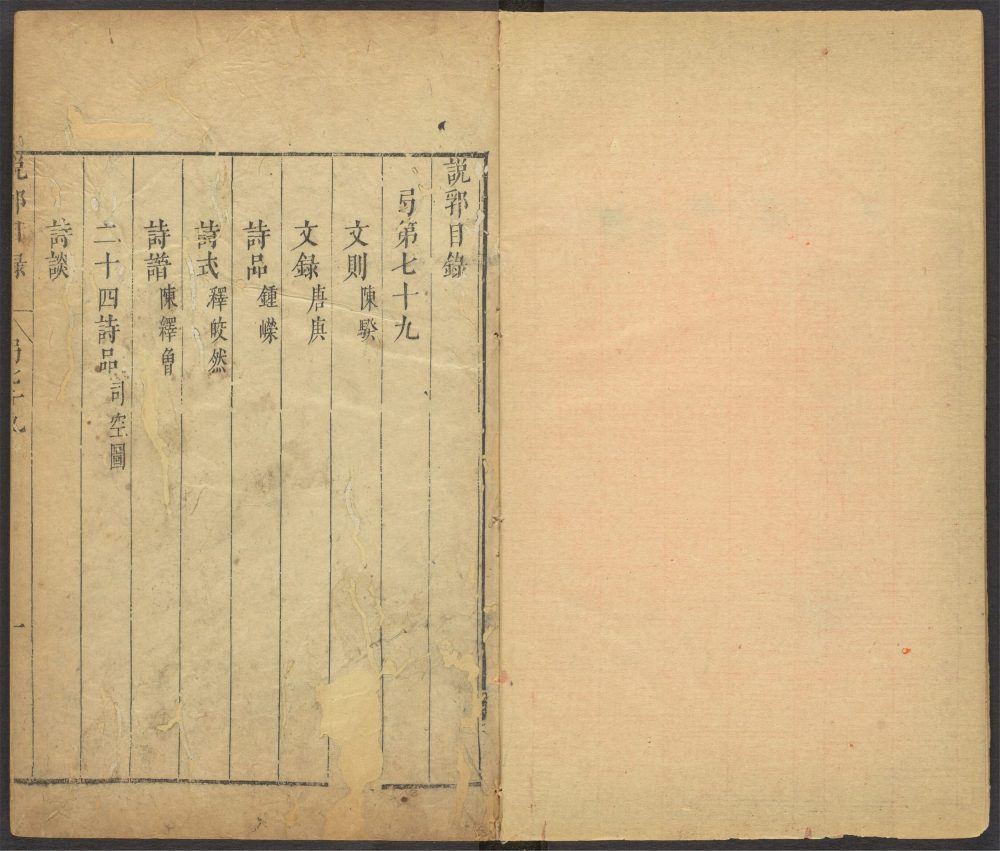 說郛目錄
弓第七十九
文則 陳騤
文録 唐庚
詩品 鍾嶸
詩式 釋皎然
詩譜 陳繹曾
二十四詩品 司空圖
詩談
說郛目録 弓七十九 一